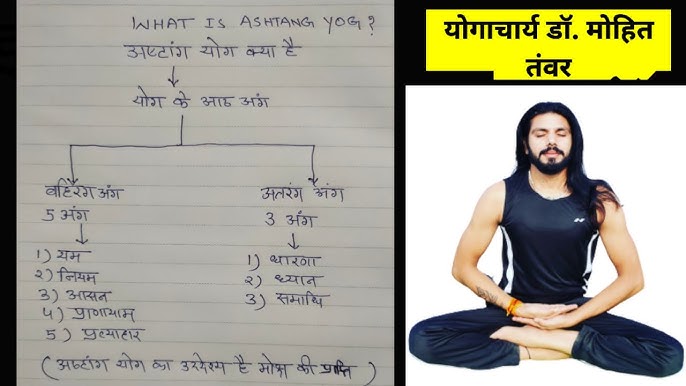 WHAT IS ASHTANG YOG?
अष्टांग योग क्या है
योग के आठ अंग
बहिरंग अंग
5 अंग
1) यम
2) नियम
3) आसन
4) प्राणायाम
5) प्रत्याहार
अतरंग अंग
3 अंग
1) धारणा
2) ध्यान
3) समाधि
( अष्टांग योग का उददेश्य है मोक्ष की प्राप्ति )
योगाचार्य डॉ. मोहित
तंवर